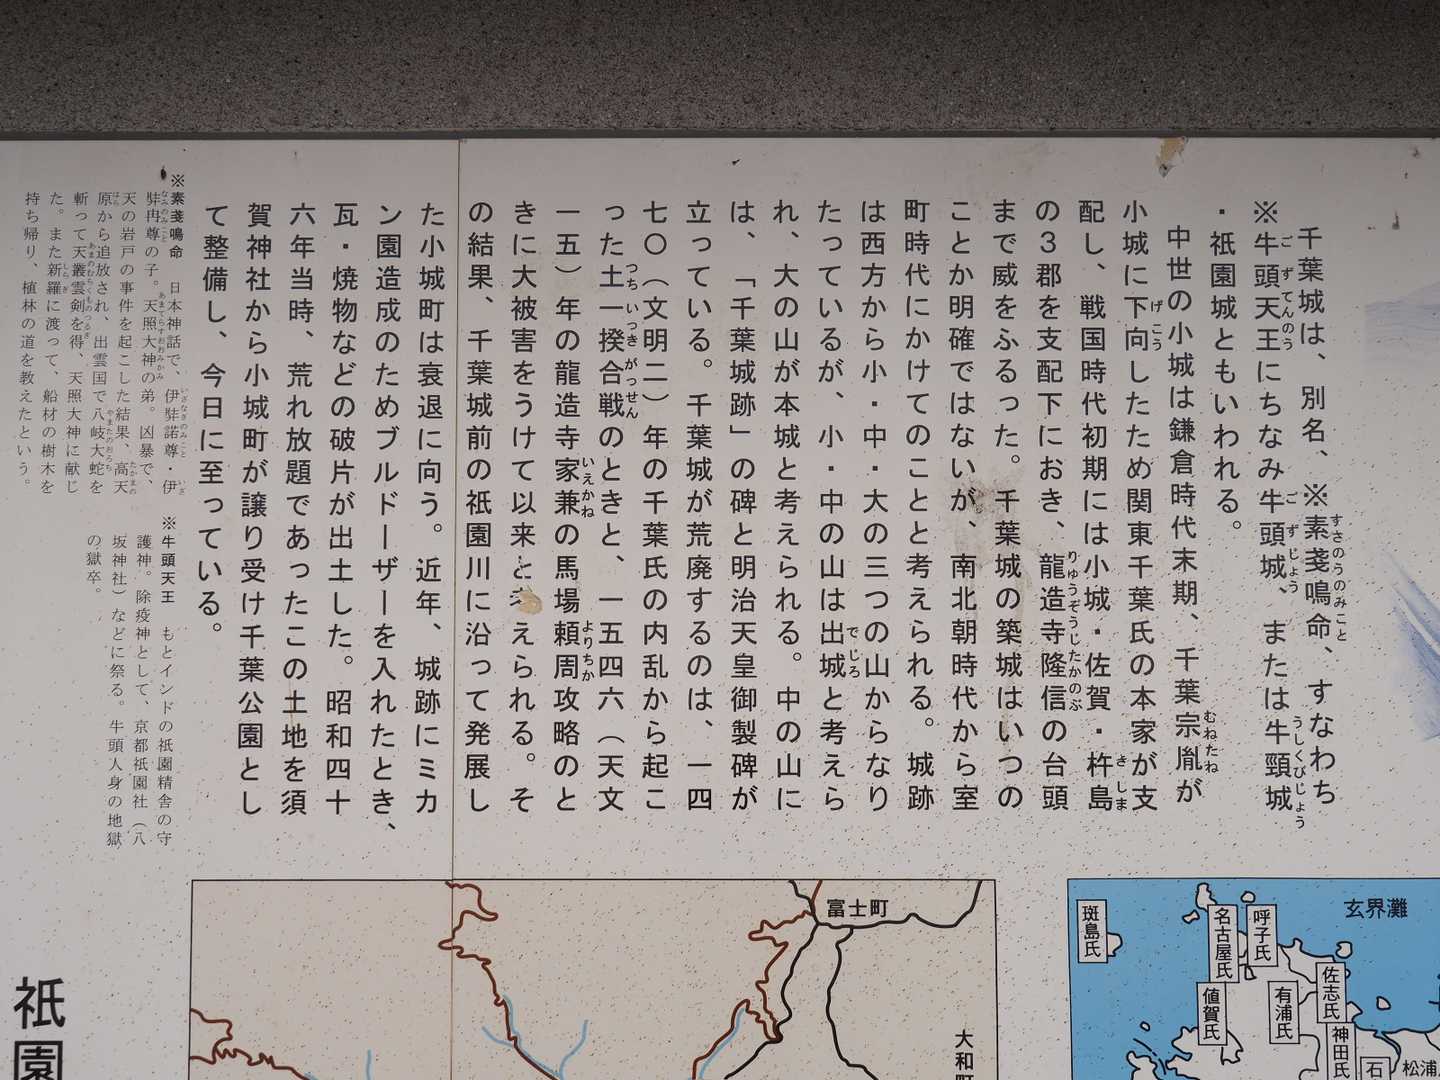 千葉城は、別名、※素戔鳴命、すなわち
※牛頭天王にちなみ牛頭城、または牛頸城
・祇園城ともいわれる。
中世の小城は鎌倉時代末期、千葉宗胤が
小城に下向したため関東千葉氏の本家が支
配し、戦国時代初期には小城・佐賀・杵島
の3郡を支配下におき、龍造寺隆信の台頭
まで威をふるった。千葉城の築城はいつの
ことか明確ではないが、南北朝時代から室
町時代にかけてのことと考えられる。城跡
は西方から小・中・大の三つの山からなり
たっているが、小・中の山は出城と考えら
れ、大の山が本城と考えられる。中の山に
は、「千葉城跡」の碑と明治天皇御製碑が
立っている。千葉城が荒廃するのは、一四
七〇（文明二）年の千葉氏の内乱から起こ
った土一揆合戦のときと、一五四六（天文
一五）年の龍造寺家兼の馬場頼周攻略のと
きに大被害をうけて以来とえられる。そ
の結果、千葉城前の祇園川に沿って発展し
た小城町は衰退に向う。近年、城跡にミカ
ン園造成のためブルドーザーを入れたとき、
瓦・焼物などの破片が出土した。昭和四十
六年当時、荒れ放題であったこの土地を須
賀神社から小城町が譲り受け千葉公園とし
て整備し、今日に至っている。
※素戔鳴命　日本神話で、伊弉諾尊・伊
弉冉尊の子。天照大神の弟。凶暴で、
天の岩戸の事件を起こした結果、高天
原から追放され、出雲国で八岐大蛇を
斬って天叢雲剣を得、天照大神に献じ
た。また新羅に渡って、船材の樹木を
持ち帰り、植林の道を教えたという。
※牛頭天王　もとインドの祇園精舎の守
護神。除疫神として、京都祇園社（八
坂神社）などに祭る。牛頭人身の地獄
の獄卒。
祇園
富士町
大和町
玄界灘
斑島氏
名古屋氏
呼子氏
値賀氏
有浦氏
佐志氏
神田氏
石
松浦